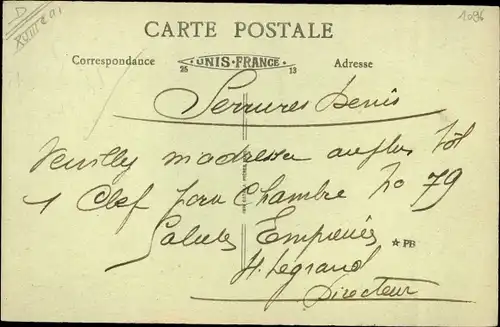 D
XVIII e a1
1096
CARTE POSTALE
Correspondance
25 UNIS-FRANCE 13
Adresse
Serrures Denis
Veuillez m'adresser au plus tôt
1 Clef pour Chambre No 79
Salutes Empressés
★ PB
H. Legrand
Directeur